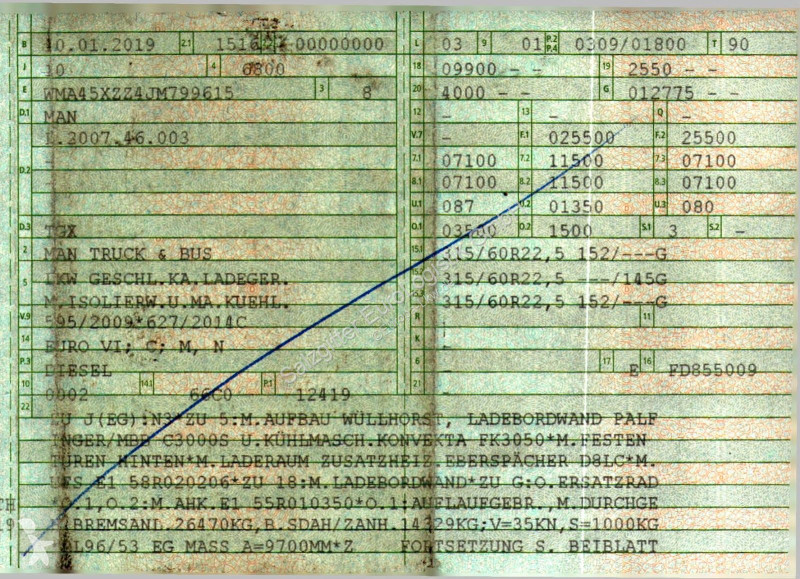 B 10.01.2019 2.1 1516 2.2 -00000000
J 10 4 6800
E WMA45XZZ4JM799615 3 8
D.1 MAN
.2007.46.003
D.2
D.3 TGX
2 MAN TRUCK & BUS
LKW GESCHL.KA.LADEGER.
5 M.ISOLIERW.U.MA.KUEHL.
V.9 595/2009*627/2014C
14 EURO VI; C; M, N
P.3 DIESEL
10 0002 14.1 66C0 P.1 12419
22
L 03 9 01 P.2 P.4 0309/01800 T 90
18 09900 - - 19 2550 - -
20 4000 - - G 012775 - -
12 - 13 - Q -
V.7 - F.1 025500 F.2 25500
7.1 07100 7.2 11500 7.3 07100
8.1 07100 8.2 11500 8.3 07100
U.1 087 U.2 01350 U.3 080
O.1 03500 O.2 1500 S.1 3 S.2 -
15.1 315/60R22,5 152/---G
315/60R22,5 ---/145G
315/60R22,5 152/---G
R - 11
K -
6 - 17 E 16 FD855009
21 -
ZU J(EG):N3*ZU 5:M.AUFBAU WÜLLHORST, LADEBORDWAND PALF
INGER/MBB C3000S U.KÜHLMASCH.KONVEKTA FK3050*M.FESTEN
TÜREN HINTEN*M.LADERAUM ZUSATZHEIZ.EBERSPÄCHER D8LC*M.
UFS E1 58R020206*ZU 18:M.LADEBORDWAND*ZU G:O.ERSATZRAD
*O.1,O.2:M.AHK.E1 55R010350*O.1:AUFLAUFGEBR.,M.DURCHGE
.BREMSANL.26470KG,B.SDAH/ZANH.14329KG;V=35KN,S=1000KG
L96/53 EG MASS A=9700MM*Z FORTSETZUNG S. BEIBLATT